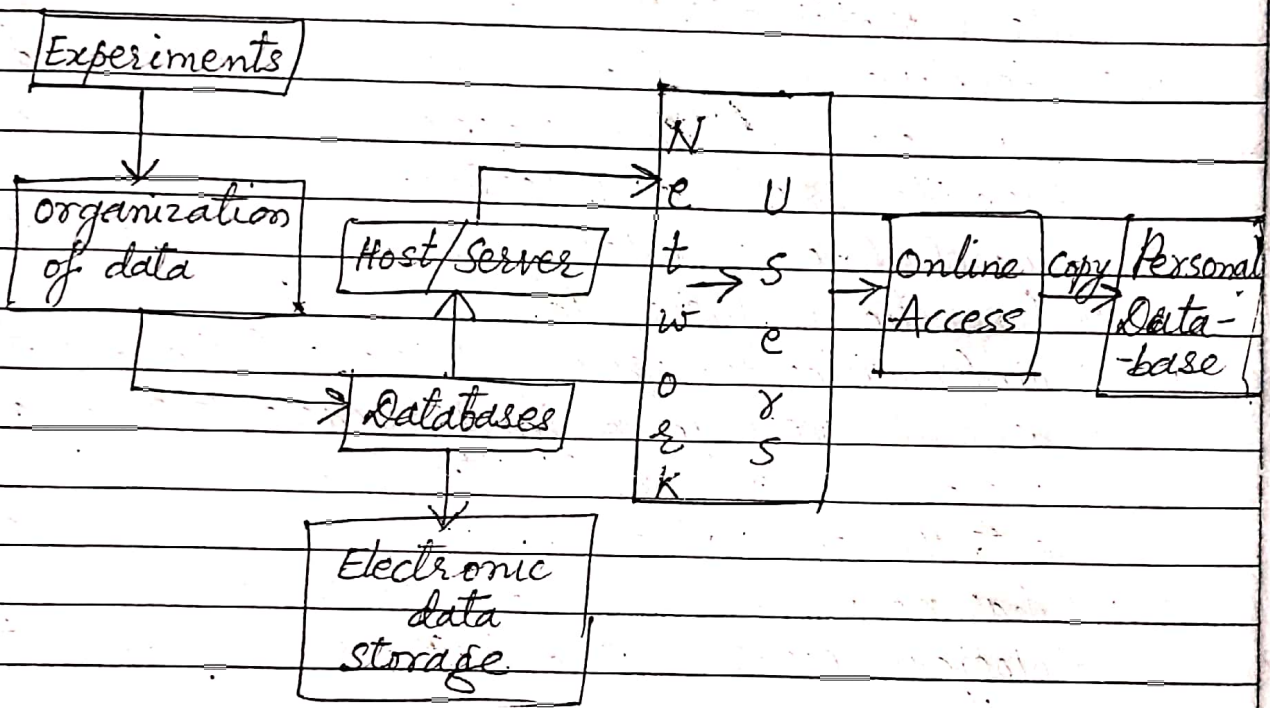 Experiments
organization
of data
Host/Server
Databases
Electronic
data
storage
Network → Users
Online
Access
Copy
Personal
Data-
-base